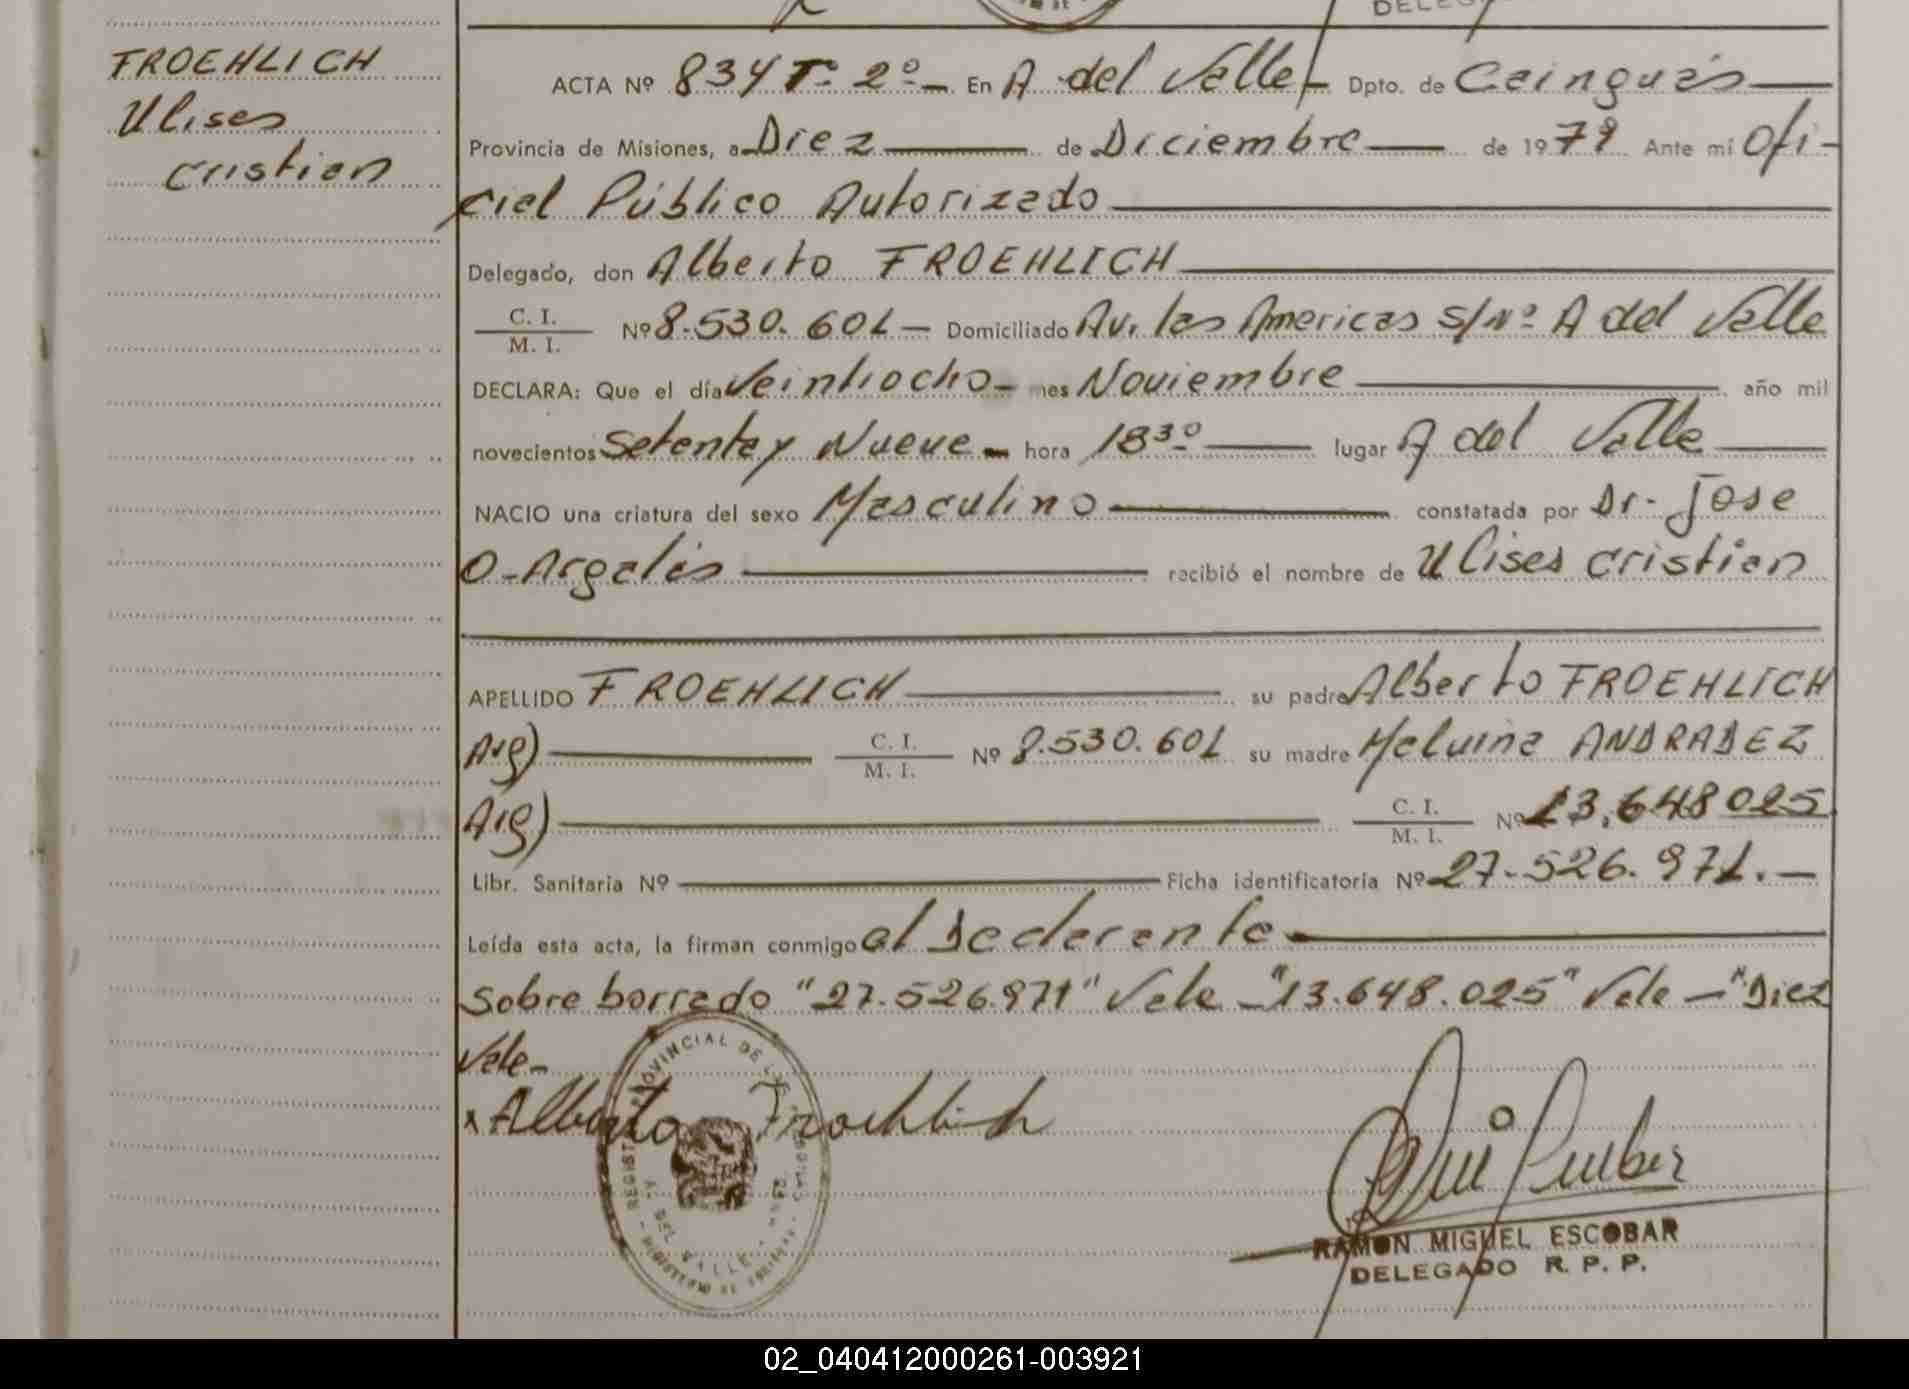 DELEG
FROEHLICH
Ulises
Cristian
ACTA Nº 834 Tº 2º - En A del Valle - Dpto. de Cainguás
Provincia de Misiones, a Diez de Diciembre de 1979 Ante mí Ofi-
cial Público Autorizado
Delegado, don Alberto FROEHLICH
C. I.
M. I. Nº 8.530.601 - Domiciliado Av. las Americas S/Nº A del Valle
DECLARA: Que el día Veintiocho - mes Noviembre año mil
novecientos Setenta y Nueve - hora 18³⁰ lugar A del Valle
NACIO una criatura del sexo Masculino constatada por Dr. Jose
O. Argalis recibió el nombre de Ulises Cristian
APELLIDO FROEHLICH su padre Alberto FROEHLICH
Arg) C. I.
M. I. Nº 8.530.601 su madre Malvina ANDRADEZ
Arg) C. I.
M. I. Nº 13.648025
Libr. Sanitaria Nº Ficha identificatoria Nº 27.526.971.-
Leída esta acta, la firman conmigo el Declarante
Sobre borrado "27.526.971" Vale - "13.648.025" Vale - "Diez
Vale-
x Alberto Froehlich
PROVINCIAL DE
A. DEL VALLE
RAMON MIGUEL ESCOBAR
DELEGADO R. P. P.
02_040412000261-003921